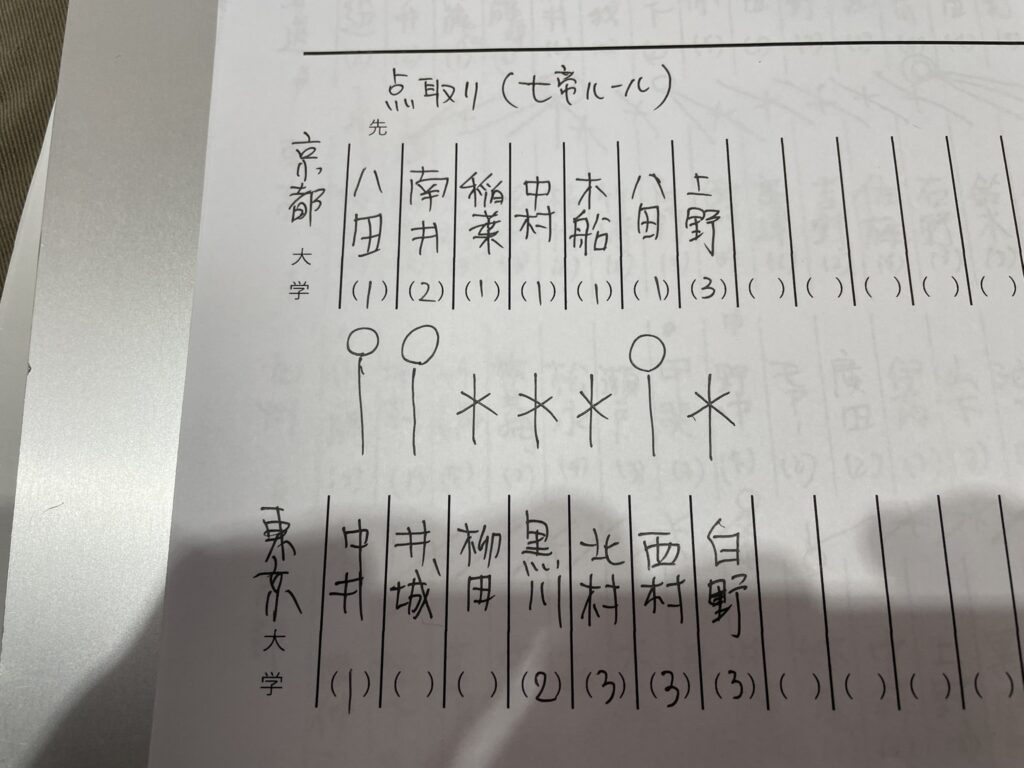 点取り(七帝ルール)
先
京都大学
八田(1)
南井(2)
稲葉(1)
中村(1)
木船(1)
八田(1)
上野(3)
( )
( )
( )
( )
( )
東京大学
中井(1)
井城( )
柳田( )
黒川(2)
北村(3)
西村(3)
白野(3)
( )
( )
( )
( )